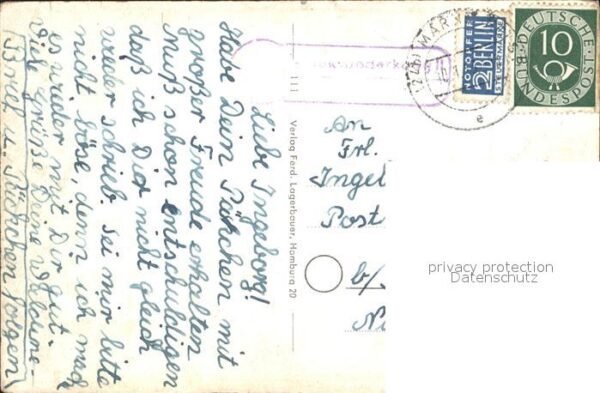 Liebe Ingeborg!
Habe Dein Päckchen mit
großer Freude erhalten
Muß schon entschuldigen
daß ich Dir nicht gleich
wieder schrieb. Sei mir bitte
nicht böse, denn ich mach
es wieder mit Dir gut.
Viele Grüße Deine
Brief u. Päckchen folgen
111 Verlag Ferd. Lagerbauer, Hamburg 20
NOTOPFER
2 BERLIN
STEUERMARKE
DEUTSCHE
10
BUNDESPOST
An
Frl.
Ingel
Post
b/
privacy protection
Datenschutz